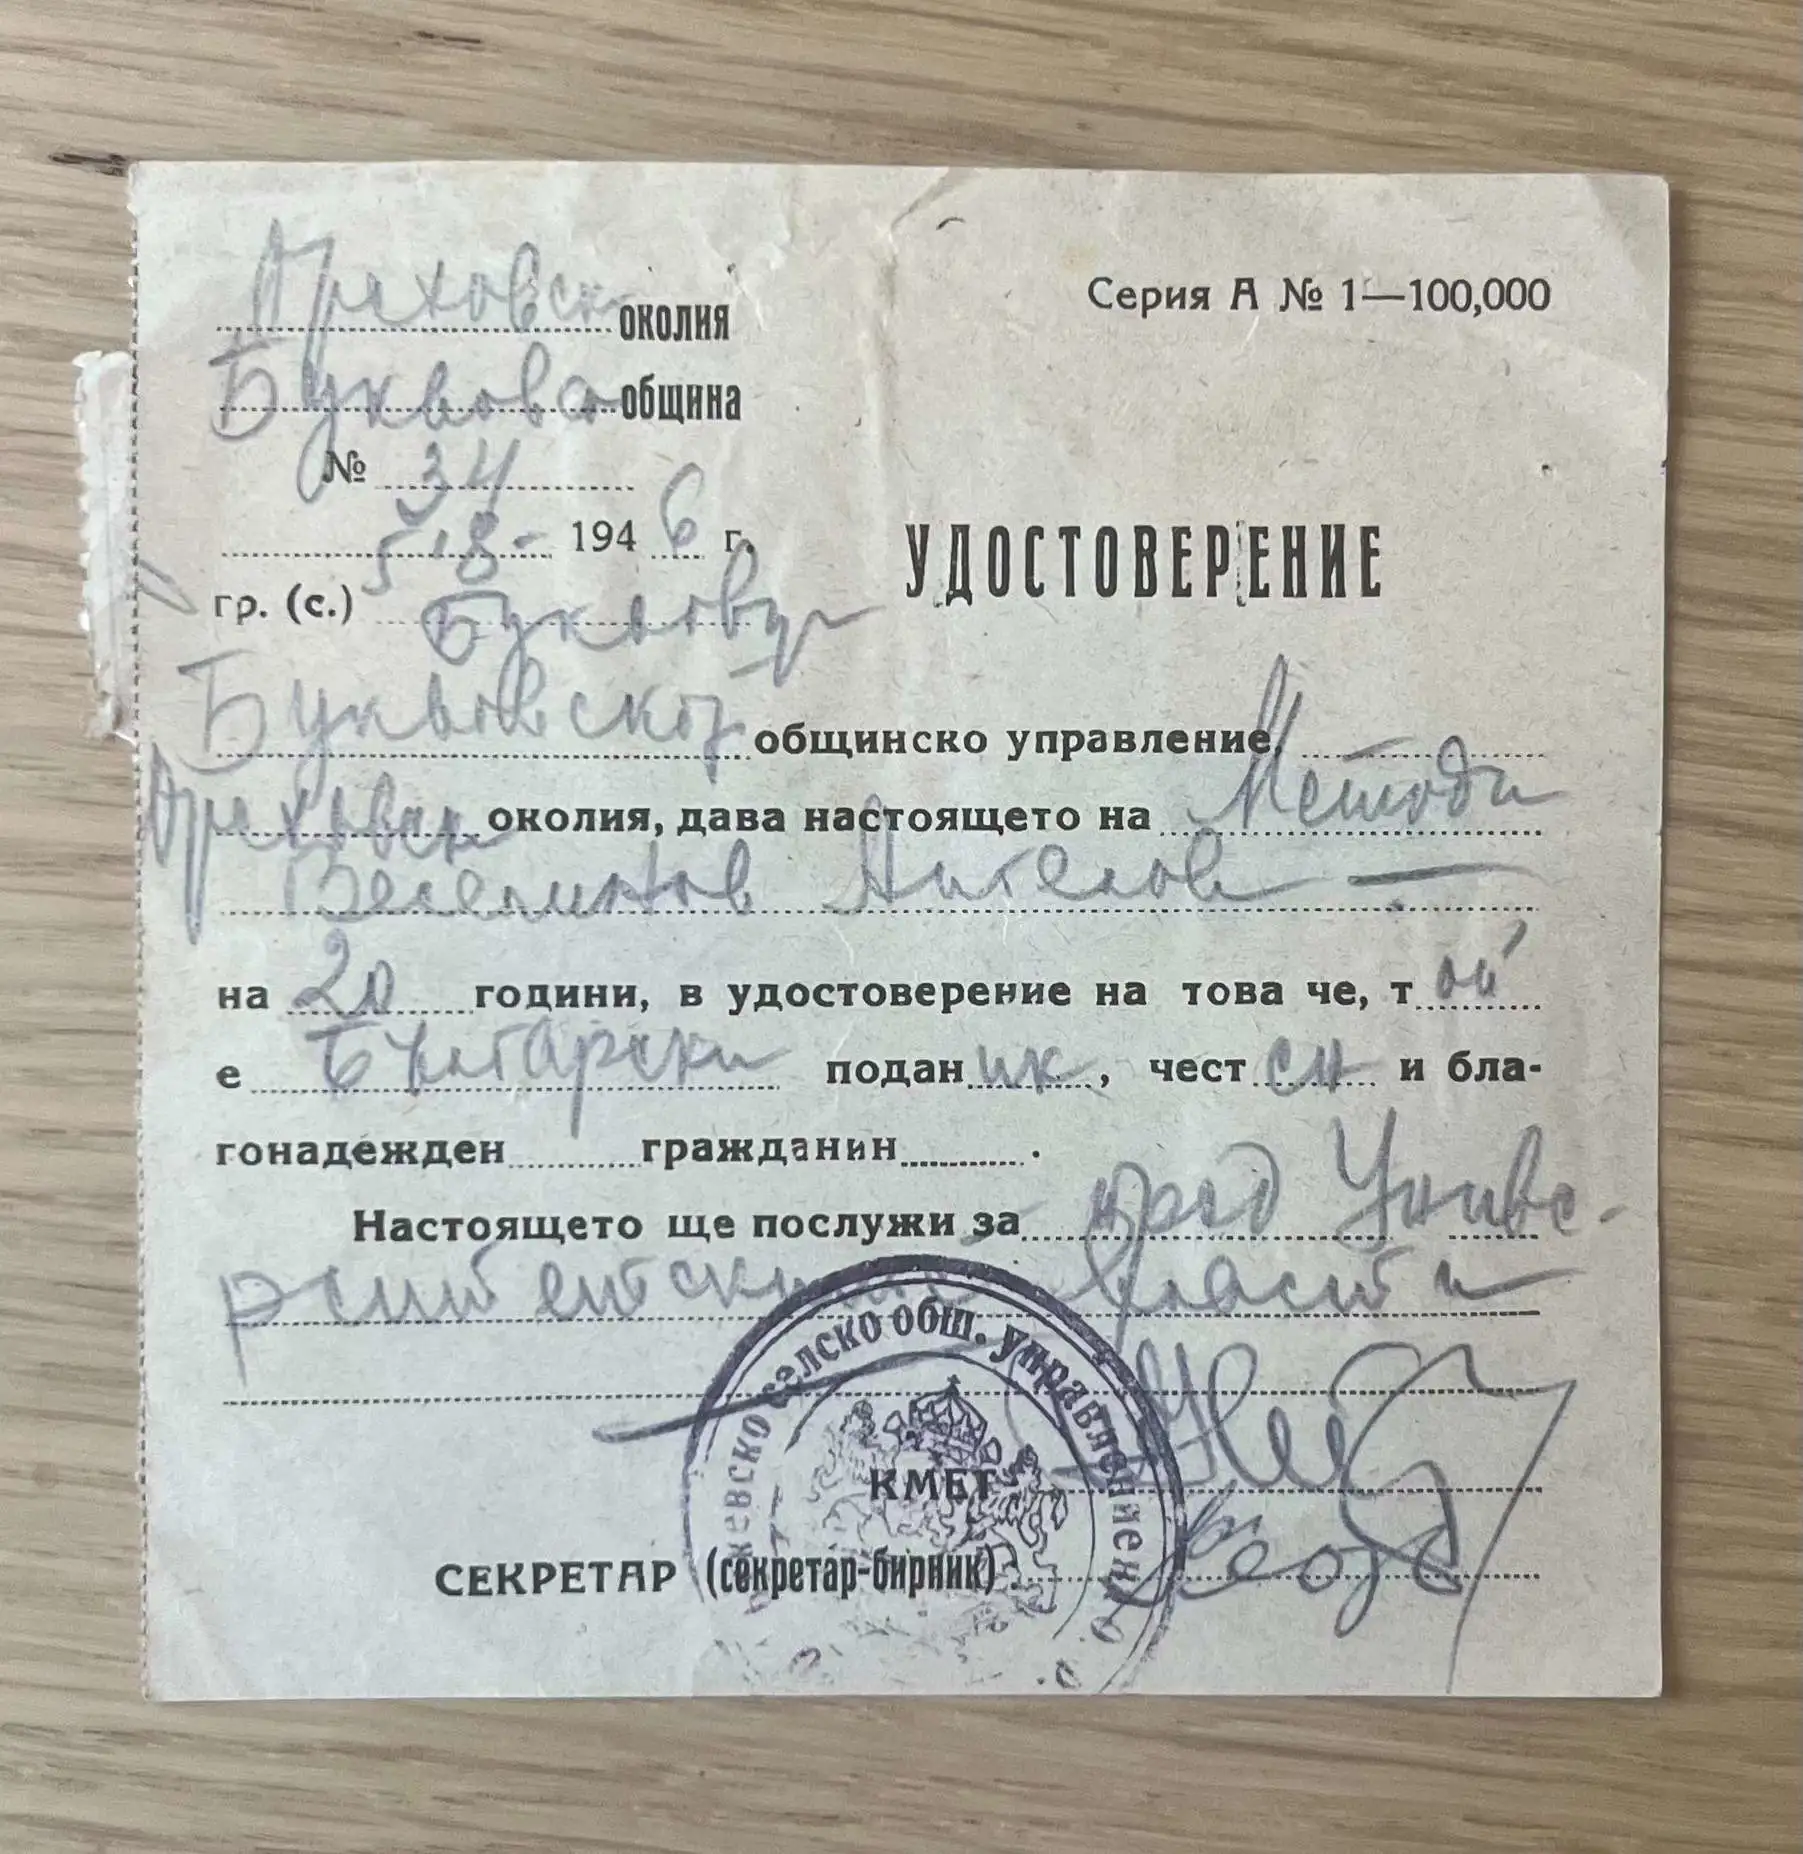 Ореховска околия
Серия А № 1—100,000
Букьовска община
№ 34
5.8- 1946 г.
УДОСТОВЕРЕНИЕ
гр. (с.) Букьовци
Букьовското общинско управление,
Ореховска околия, дава настоящето на Методи
Веселинов Ангелов —
на 20 години, в удостоверение на това че, той
е Български поданик, честен и бла-
гонадежден гражданин .
Настоящето ще послужи за пред Униве-
рситетските власти
селско общ. управление
КМЕТ
СЕКРЕТАР (секретар-бирник)